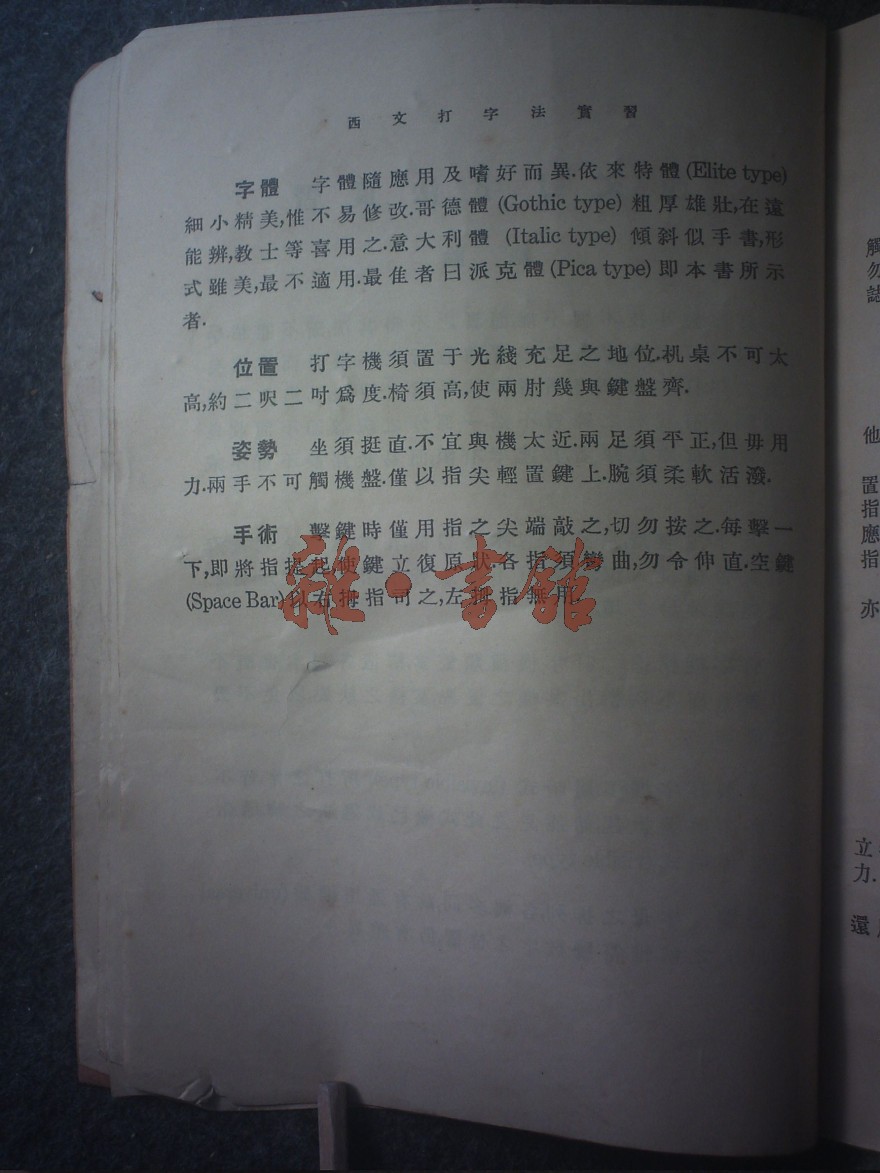 西文打字法實習
字體 字體隨應用及嗜好而異.依來特體(Elite type)
細小精美,惟不易修改.哥德體(Gothic type)粗厚雄壯,在遠
能辨,教士等喜用之.意大利體(Italic type)傾斜似手書,形
式雖美,最不適用.最佳者曰派克體(Pica type)即本書所示
者.
位置 打字機須置于光綫充足之地位.机桌不可太
高,約二呎二吋爲度.椅須高,使兩肘幾與鍵盤齊.
姿勢 坐須挺直.不宜與機太近.兩足須平正,但毋用
力.兩手不可觸機盤.僅以指尖輕置鍵上.腕須柔軟活潑.
手術 擊鍵時僅用指之尖端敲之,切勿按之.每擊一
下,即將指提起使鍵立復原狀.各指須彎曲,勿令伸直.空鍵
(Space Bar)以右拇指司之,左拇指無用.
雜·書館
觸
勿
誌
他
置
指
應
指
亦
立
力.
還